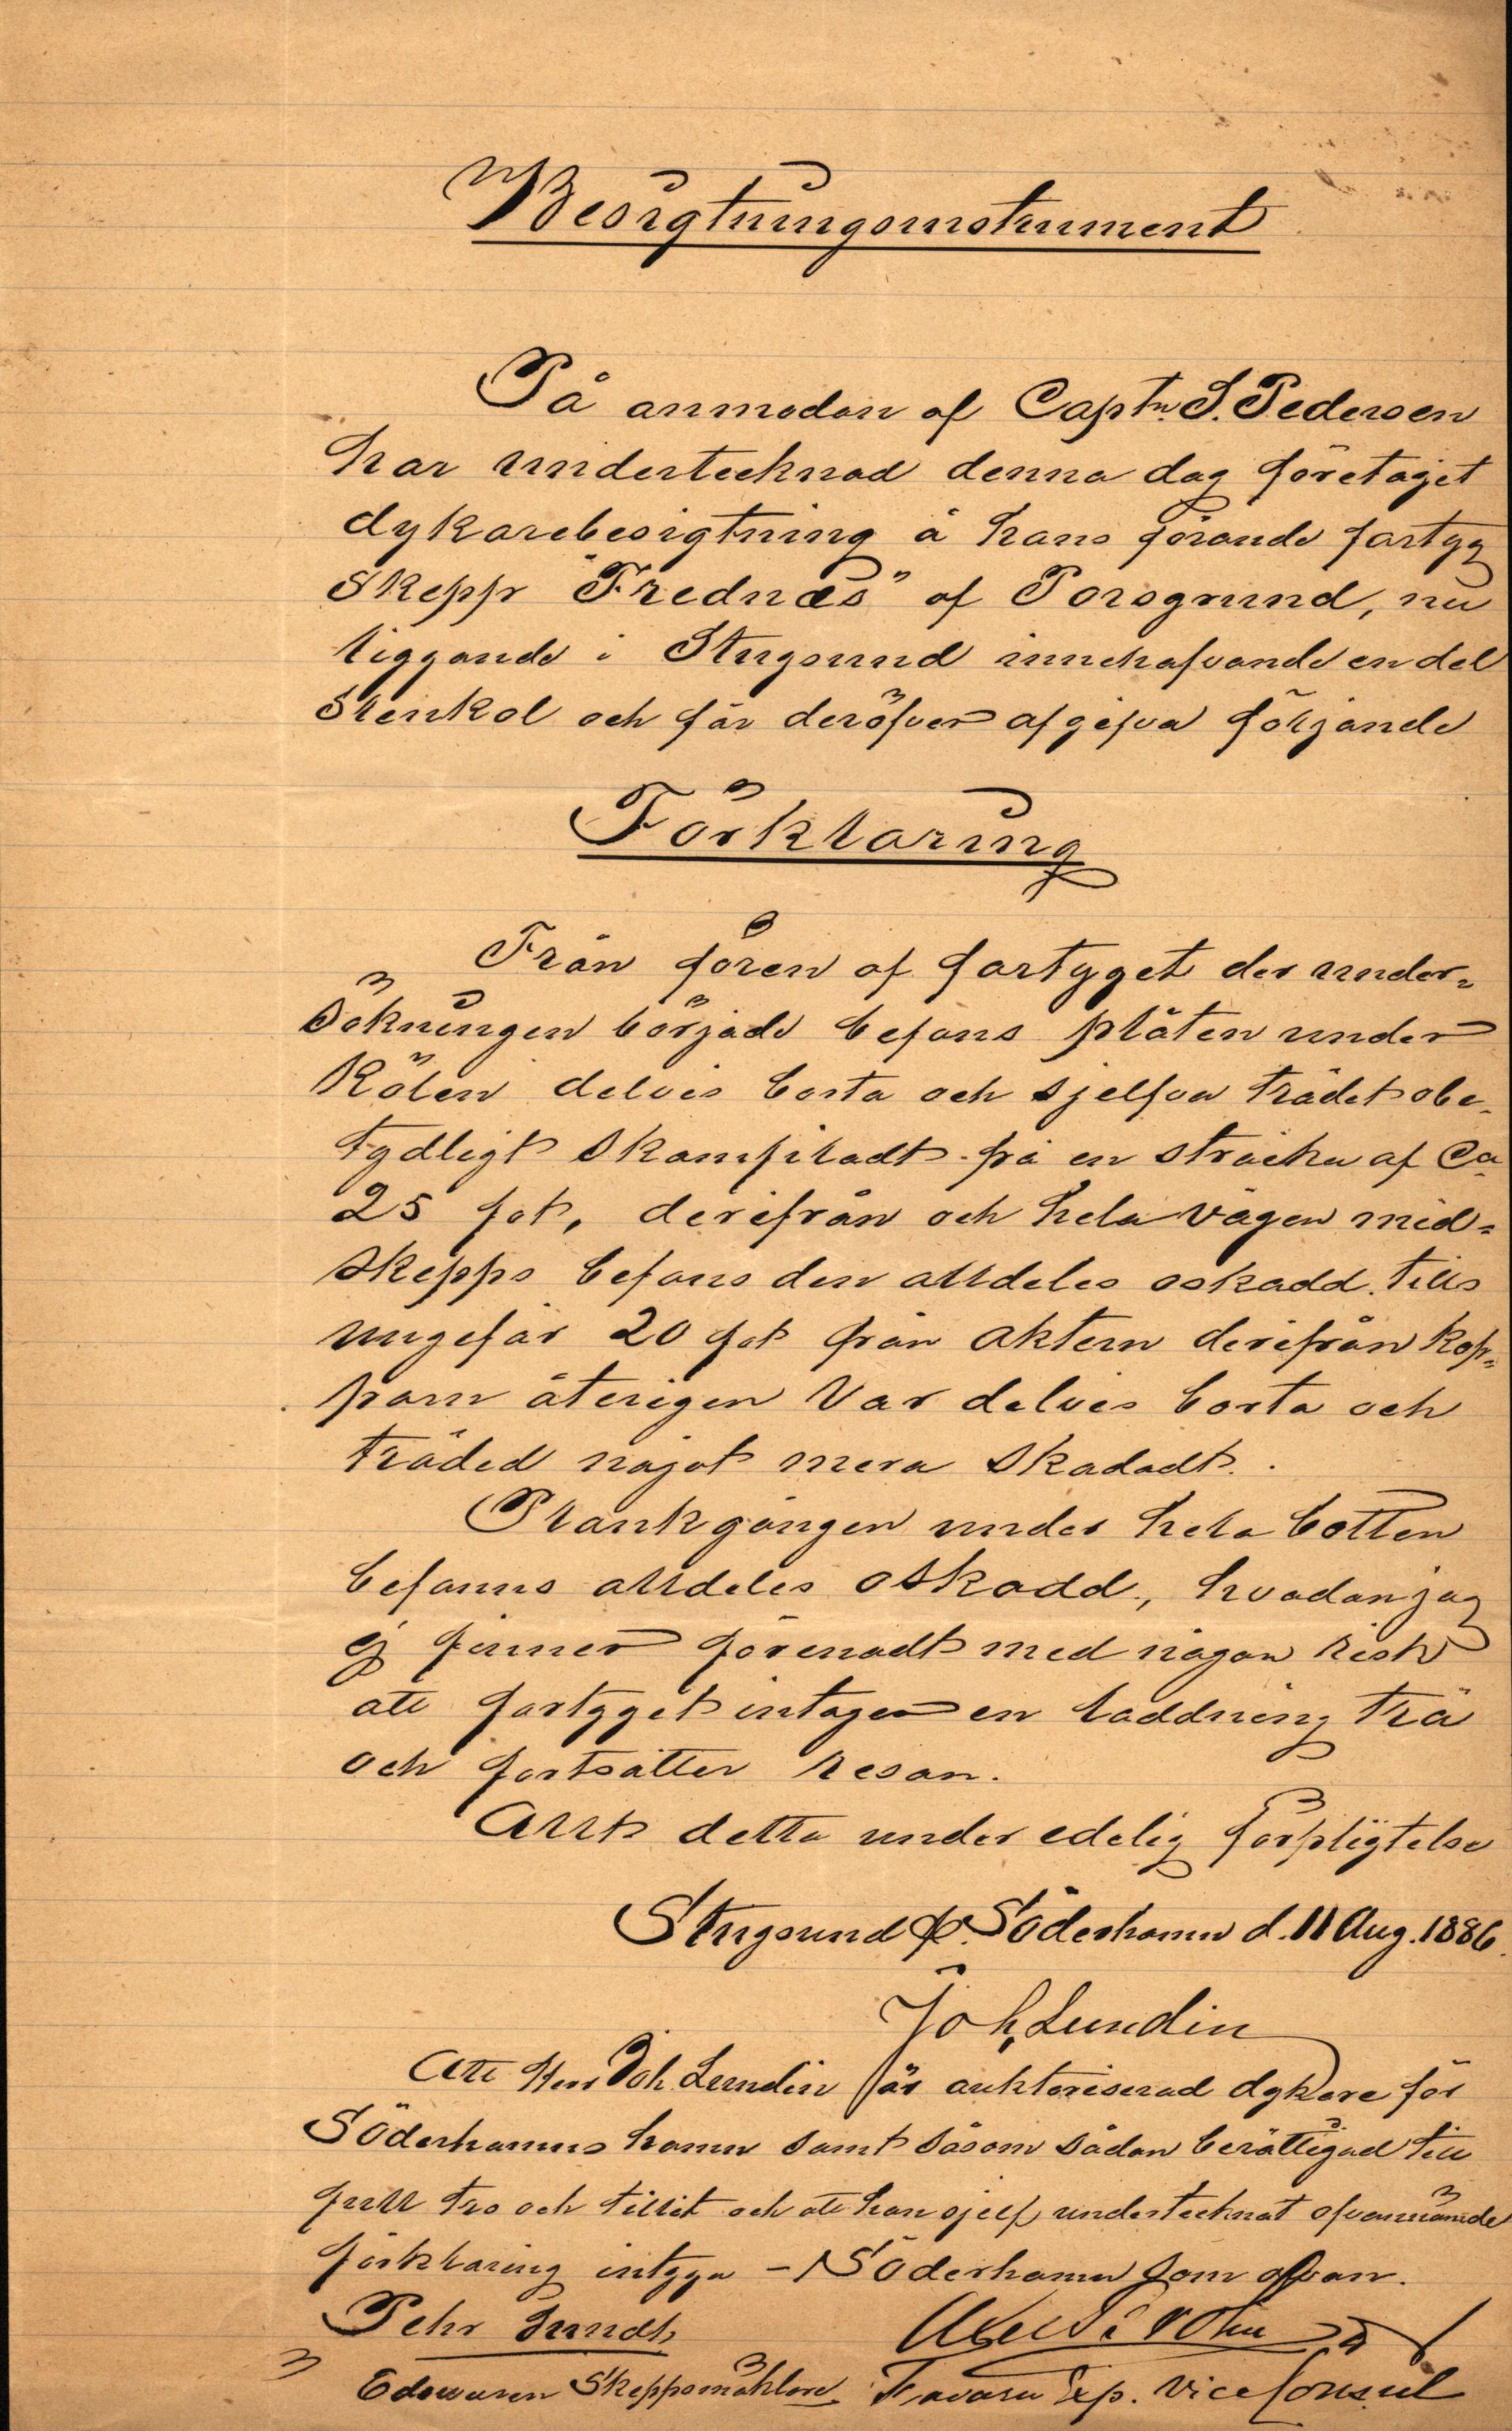 Besigtningsinstrument
På anmodan af Captn. S. Pedersen
har undertecknad denna dag företaget
dykarebesigtning å hans förande fartyg
Skepp "Frednæs" af Porsgrund, nu
liggande i Stugsund innehafvande en del
Stenkol och får deröfver afgifva följande
Förklaring
Från fören af fartyget der under=
sökningen började befans plåten under
Kölen delvis borta och sjelfva trädet obe-
tydligt skamfiladt på en sträcka af Ca
25 fot, derifrån och hela vägen mid=
skepps befans den alldeles oskadd tills
ungefär 20 fot från aktern derifrån kop=
parn återigen var delvis borta och
träded något mera skadadt.
Plankgången under hela botten
befanns alldeles oskadd, hvadan jag
ej finner förenadt med någon risk
att fartyget intager en laddning trä
och fortsätter resan.
Allt detta under edelig förpligtelse
Stugsund & Söderhamn d. 11 Aug. 1886.
Joh. Lundin
Att Herr Joh Lundin är auktoriserad dykare för
Söderhamns hamn samt såsom sådan berättigad till
full tro och tillit och att han sjelf undertecknat ofvannämnde
förklaring intyga - Söderhamn som ofvan.
Pehr Lundh
Edsvuren Skeppsmäklare Vice Consul